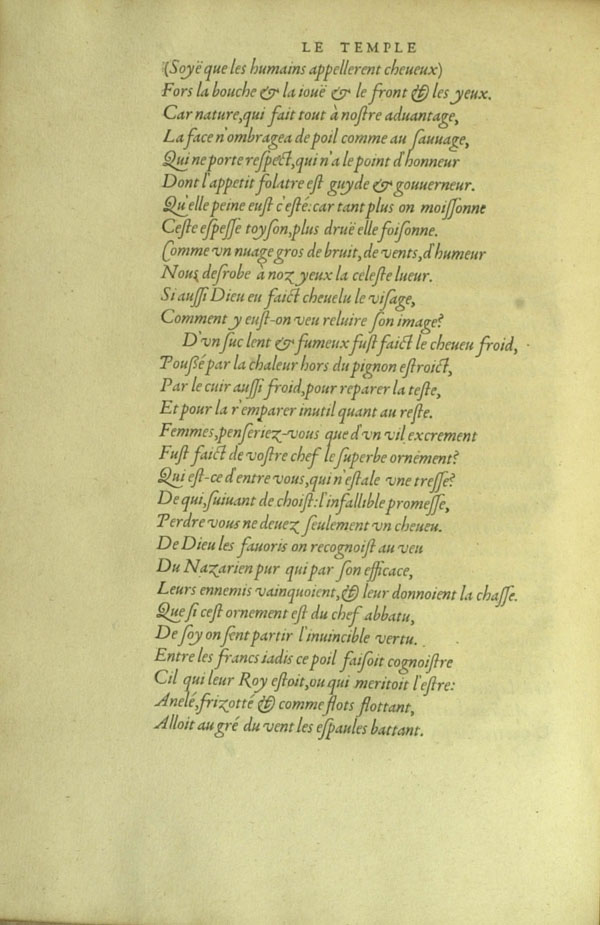 LE TEMPLE
(Soyë que les humains appellerent cheueux)
Fors la bouche & la iouë & le front & les yeux.
Car nature, qui fait tout à nostre aduantage,
La face n'ombragea de poil comme au sauuage,
Qui ne porte respect, qui n'a le point d'honneur
Dont l'appetit folatre est guyde & gouuerneur.
Qu'elle peine eust c'esté: car tant plus on moissonne
Ceste espesse toyson, plus druë elle foisonne.
Comme vn nuage gros de bruit, de vents, d'humeur
Nous desrobe à noz yeux la celeste lueur.
Si aussi Dieu eu faict cheuelu le visage,
Comment y eust-on veu reluire son image?
D'vn suc lent & fumeux fust faict le cheueu froid,
Poussé par la chaleur hors du pignon estroict,
Par le cuir aussi froid, pour reparer la teste,
Et pour la r'emparer inutil quant au reste.
Femmes, penseriez-vous que d'vn vil excrement
Fust faict de vostre chef le superbe ornement?
Qui est-ce d'entre vous, qui n'estale vne tresse?
De qui, suiuant de choist: l'infallible promesse,
Perdre vous ne deuez seulement vn cheueu.
De Dieu les fauoris on recognoist au veu
Du Nazarien pur qui par son efficace,
Leurs ennemis vainquoient, & leur donnoient la chasse.
Que si cest ornement est du chef abbatu,
De soy on sent partir l'inuincible vertu.
Entre les francs iadis ce poil faisoit cognoistre
Cil qui leur Roy estoit, ou qui meritoit l'estre:
Anelé, frizotté & comme flots flottant,
Alloit au gré du vent les espaules battant.